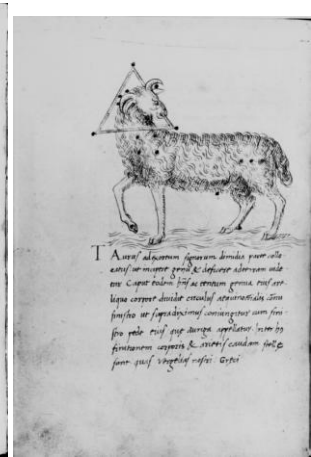 TAurus ad exortum signorum dimidia parte collo
catus ut incipere genua & deficere ad terram uide
tur Caput eodem
liquo corpore diuidit circulus
sinistro ut supra diximus coniungitur cum sini
stro pede eius qui auriga appellatur. Inter hu
finitionem corporis & arietis caudam stelle
sunt quas uergilias nostri Greci